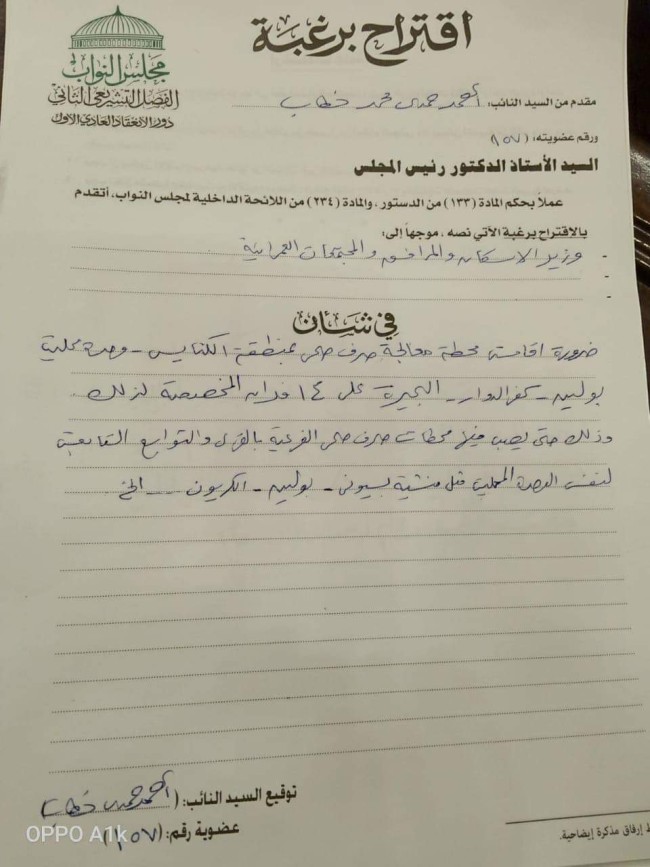 مجلس النواب
الفصل التشريعى الثانى
دور الانعقاد العادى الأول
اقتراح برغبة
مقدم من السيد النائب: أحمد حمدى محمد خطاب
ورقم عضويته: (١٥٧)
السيد الأستاذ الدكتور رئيس المجلس
عملاً بحكم المادة (١٣٣) من الدستور، والمادة (٢٣٤) من اللائحة الداخلية لمجلس النواب، أتقدم
بالاقتراح برغبة الآتي نصه، موجهاً إلى:
- وزير الاسكان والمرافق والمجتمعات العمرانية
-
-
في شأن
ضرورة اقامة محطة معالجة صرف صحى بمنطقة الكنايس - وحدة محلية
بولين - كفر الدوار - البحيرة على ١٤ فدان المخصصة لذلك
وذلك حتى يصب فيها محطات صرف صحى الفرعية بالقرى والتوابع التابعة
لنفس الوحدة المحلية مثل منشية بسيونى - بولين - الكريون --- الخ
توقيع السيد النائب: (أحمد حمدى خطاب)
عضوية رقم: (١٥٧)
إرفاق مذكرة إيضاحية.
OPPO A1k